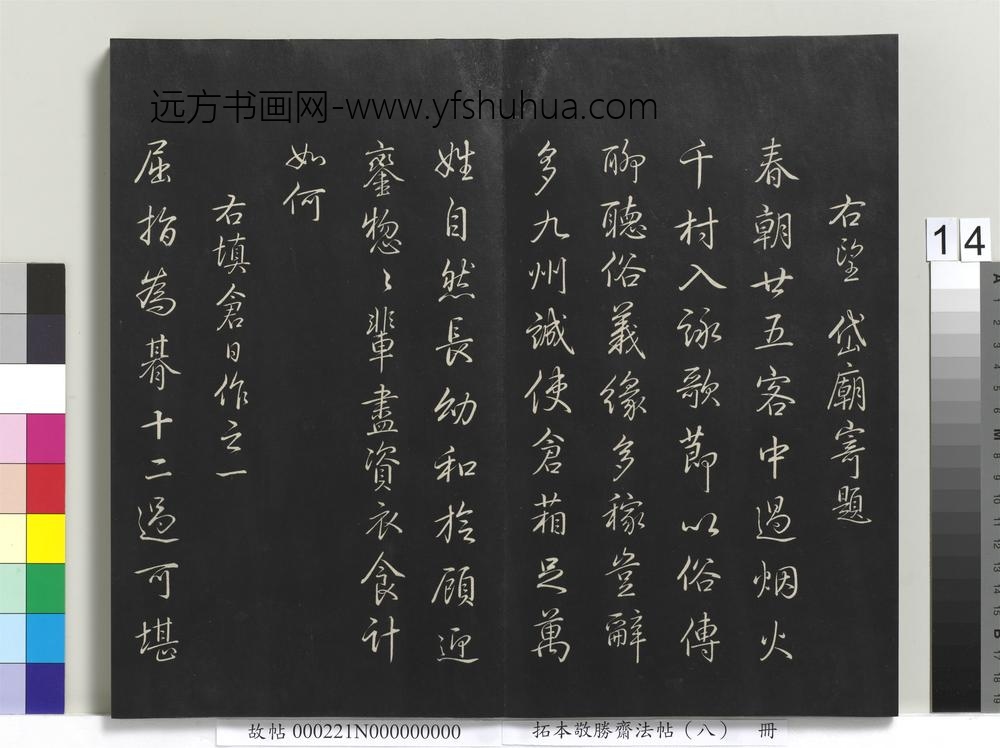 远方书画网-www.yfshuhua.com
右望岱廟寄題
春朝廿五客中過烟火
千村入詠歌節以俗傳
聊聽俗義緣多稼豈辭
多九州誠使倉箱足萬
姓自然長幼和於顧迎
鑾惣〻輩盡資衣食計
如何
右填倉日作之一
屈指為春十二過可堪
14
故帖 000221N000000000
拓本敬勝齋法帖（八） 冊